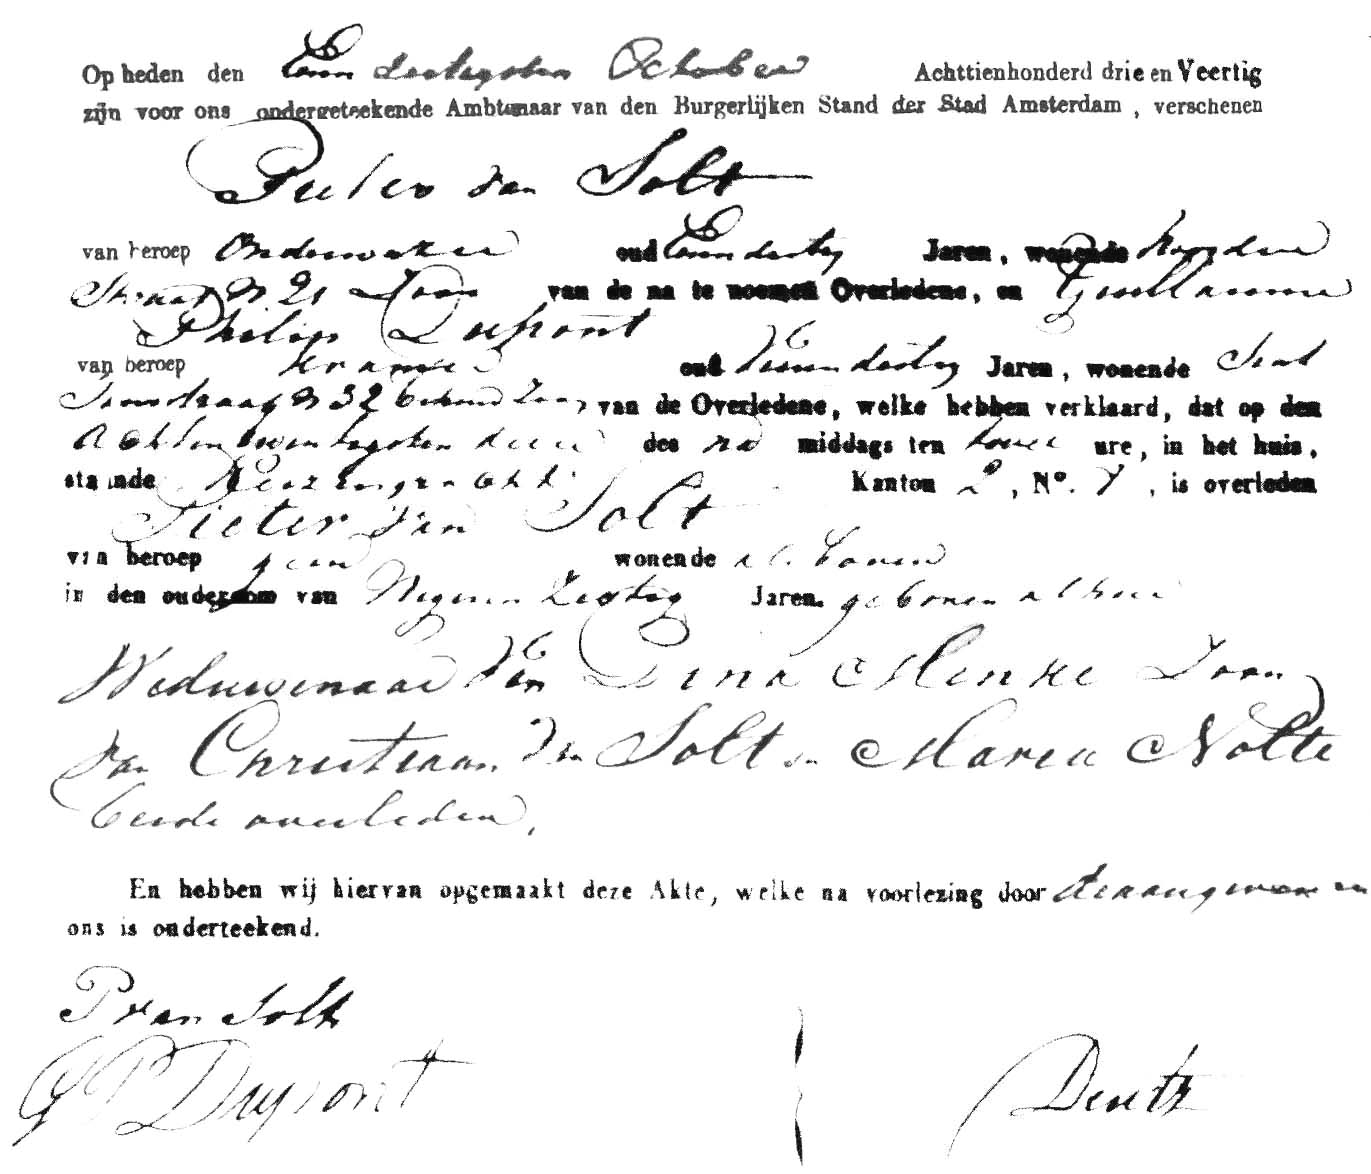 Op heden den Een dertigsten October Achttienhonderd drie en Veertig
zijn voor ons ondergeteekende Ambtenaar van den Burgerlijken Stand der Stad Amsterdam, verschenen
Pieter van Solt
van beroep oud Een dertig Jaren, wonende
Straat N 21 Zoon van de na te noemen Overledene, en Guillaume
Philip Dupont
van beroep Kramer oud dertig Jaren, wonende
N 32 bekend van de Overledene, welke hebben verklaard, dat op den
Achtentwintigsten dezer des na middags ten twee ure, in het huis,
staande Keizersgracht Kanton 2, No. 7, is overleden
Pieter van Solt
van beroep geen wonende als boven
in den ouderdom van Negenen Zestig Jaren. geboren alhier
Weduwenaar van Dina Menke Zoon
van Christiaan van Solt en Maria Nolte
beide overleden,
En hebben wij hiervan opgemaakt deze Akte, welke na voorlezing door de aangevers en
ons is onderteekend.
P van Solt
G P Dupont
Dentz